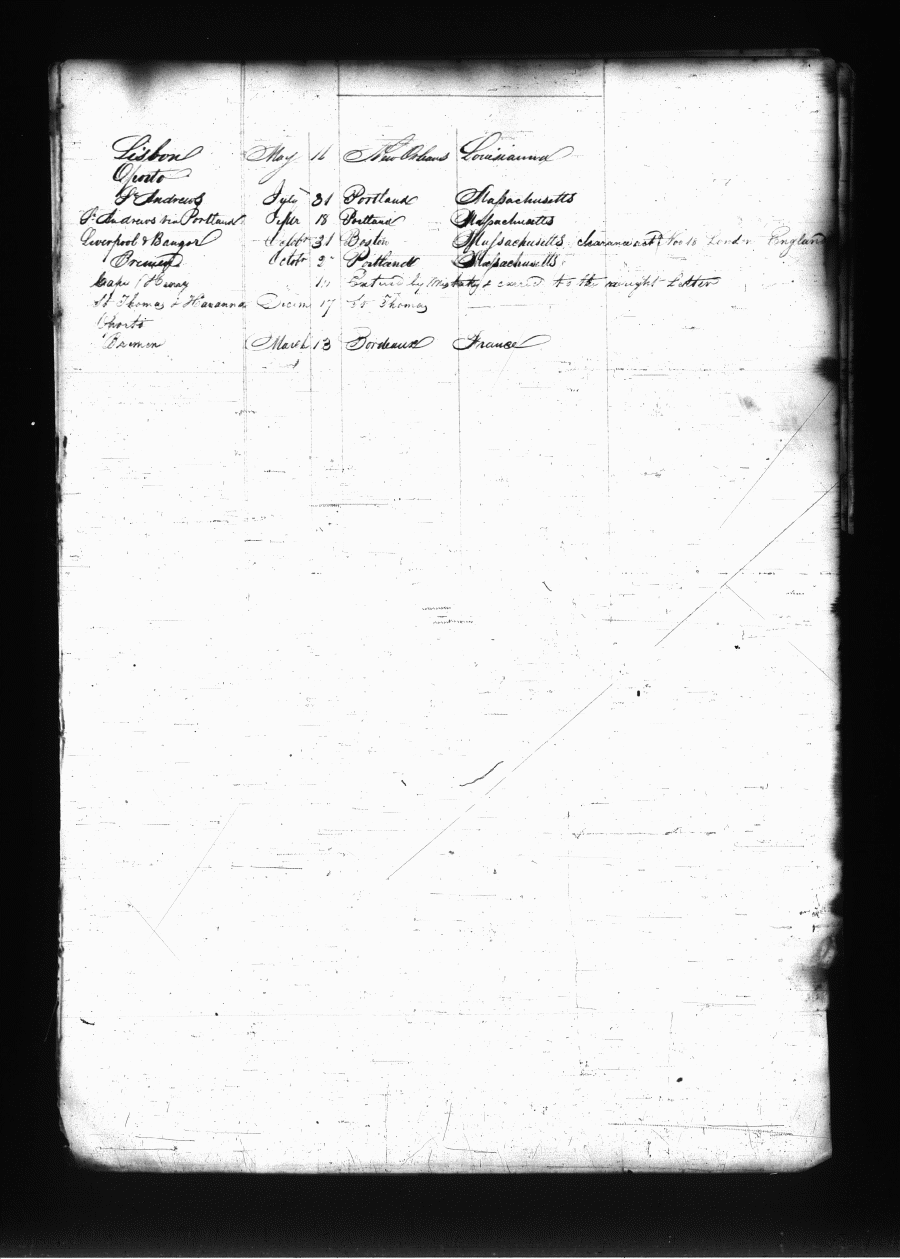 Lisbon May 16 New Orleans Louisianna
Oporto
St Andrews 31 Portland Massachusetts
St Andrews via Portland Septr 18 Portland Massachusetts
Liverpool & Bangor Octobr 31 Boston Massachusetts Clearance London England
Bremen Octobr 2 Portland Massachusetts
Cape Entered by Mistake & carried to the Letter
St Thomas & Havanna Decem 17 St Thomas
Oporto
Bremen March 13 Bordeaux France